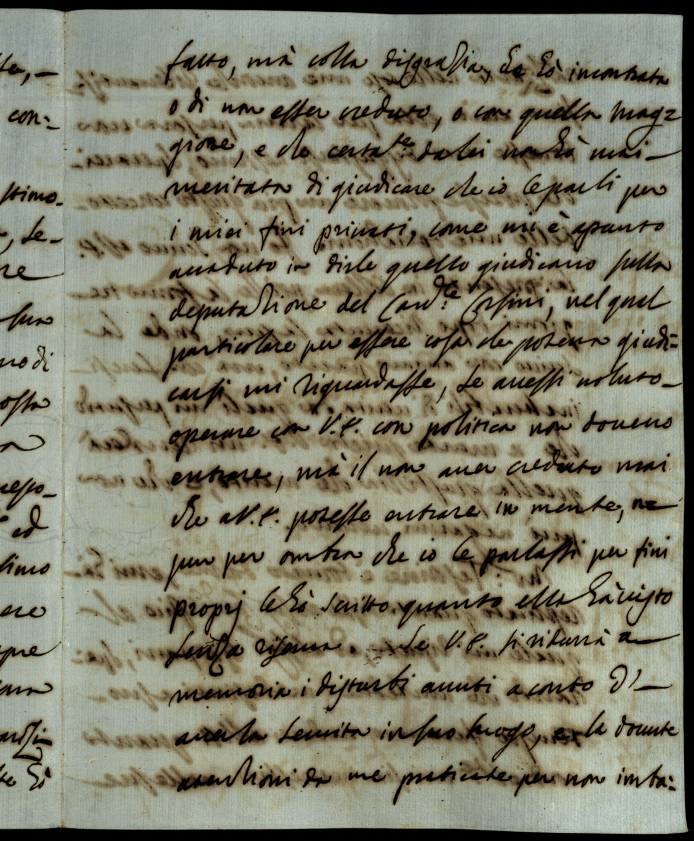 te,-
con:-
stimo-
, Se-
re
sua
no di
ossa
ed
simo
ere
te hò
fatto, mà colla disgrazia, che hò incontrata
o di non esser creduto, o con quella mag=
giore, e che certa.te da lei non hò mai
meritata di giudicare che io le parli per
i miei fini privati, come mi è apunto
accaduto in dirle quello giudicavo sulla
deputazione del Card.le Corsini, nel qual
particolare per essere cosa che poteva giudi=
carsi mi riguardasse, se avessi voluto
operare con V.E. con politica non dovevo
entrare, mà il non aver creduto mai
che a V.E. potesse entrare in mente, ne
pur per ombra che io le parlassi per fini
proprj le hò scritto quanto ella hà visto
senza riserva. Se V.E. si ridurrà a
memoria i disturbi avuti a conto d'
averla servita in suo luogo, e le dovute
attenzioni da me praticate per non imba=